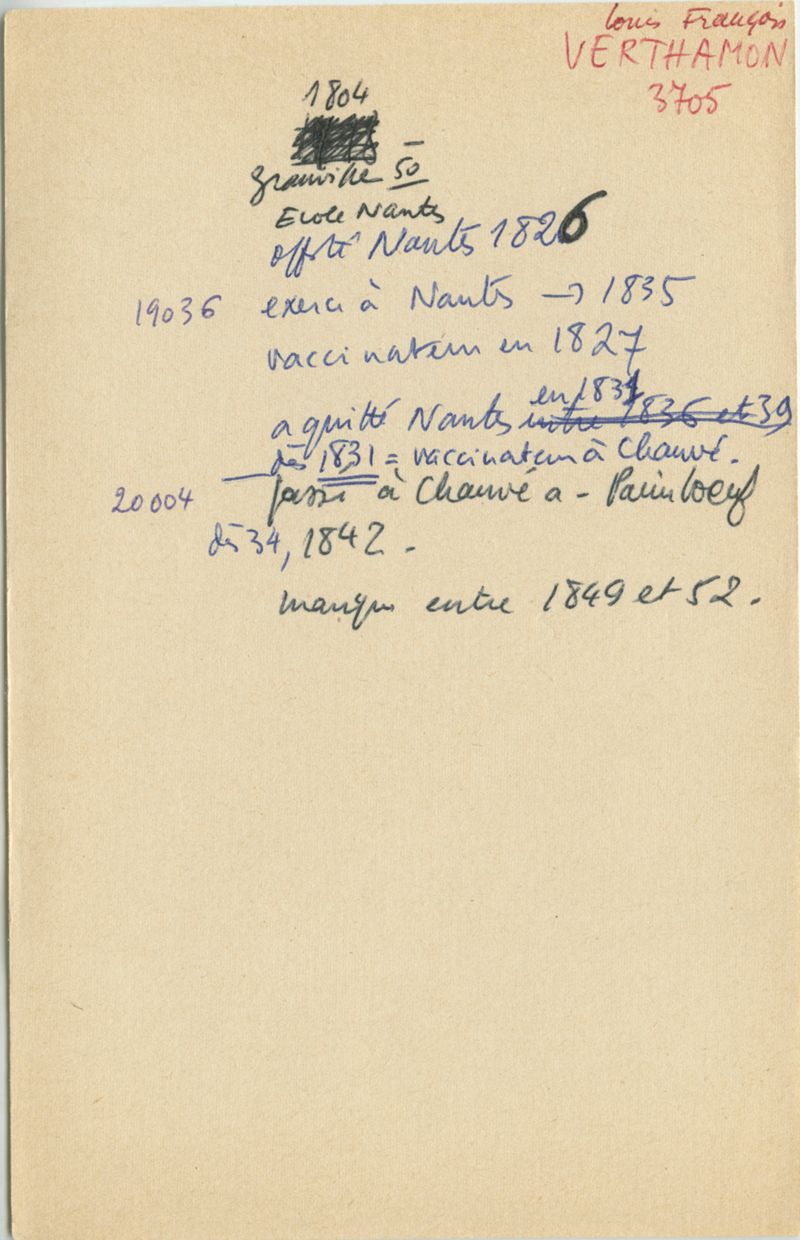 Louis François
VERTHAMON
3705
1804
Granville 50
Ecole Nantes
offsté Nantes 1826
19036 exerce à Nantes → 1835
vaccinateur en 1827
en 1831
a quitté Nantes entre 1836 et 39
dès 1831 = vaccinateur à Chauvé.
20004 passé à Chauvé a - Paimboeuf
dès 34, 1842.
manque entre 1849 et 52.